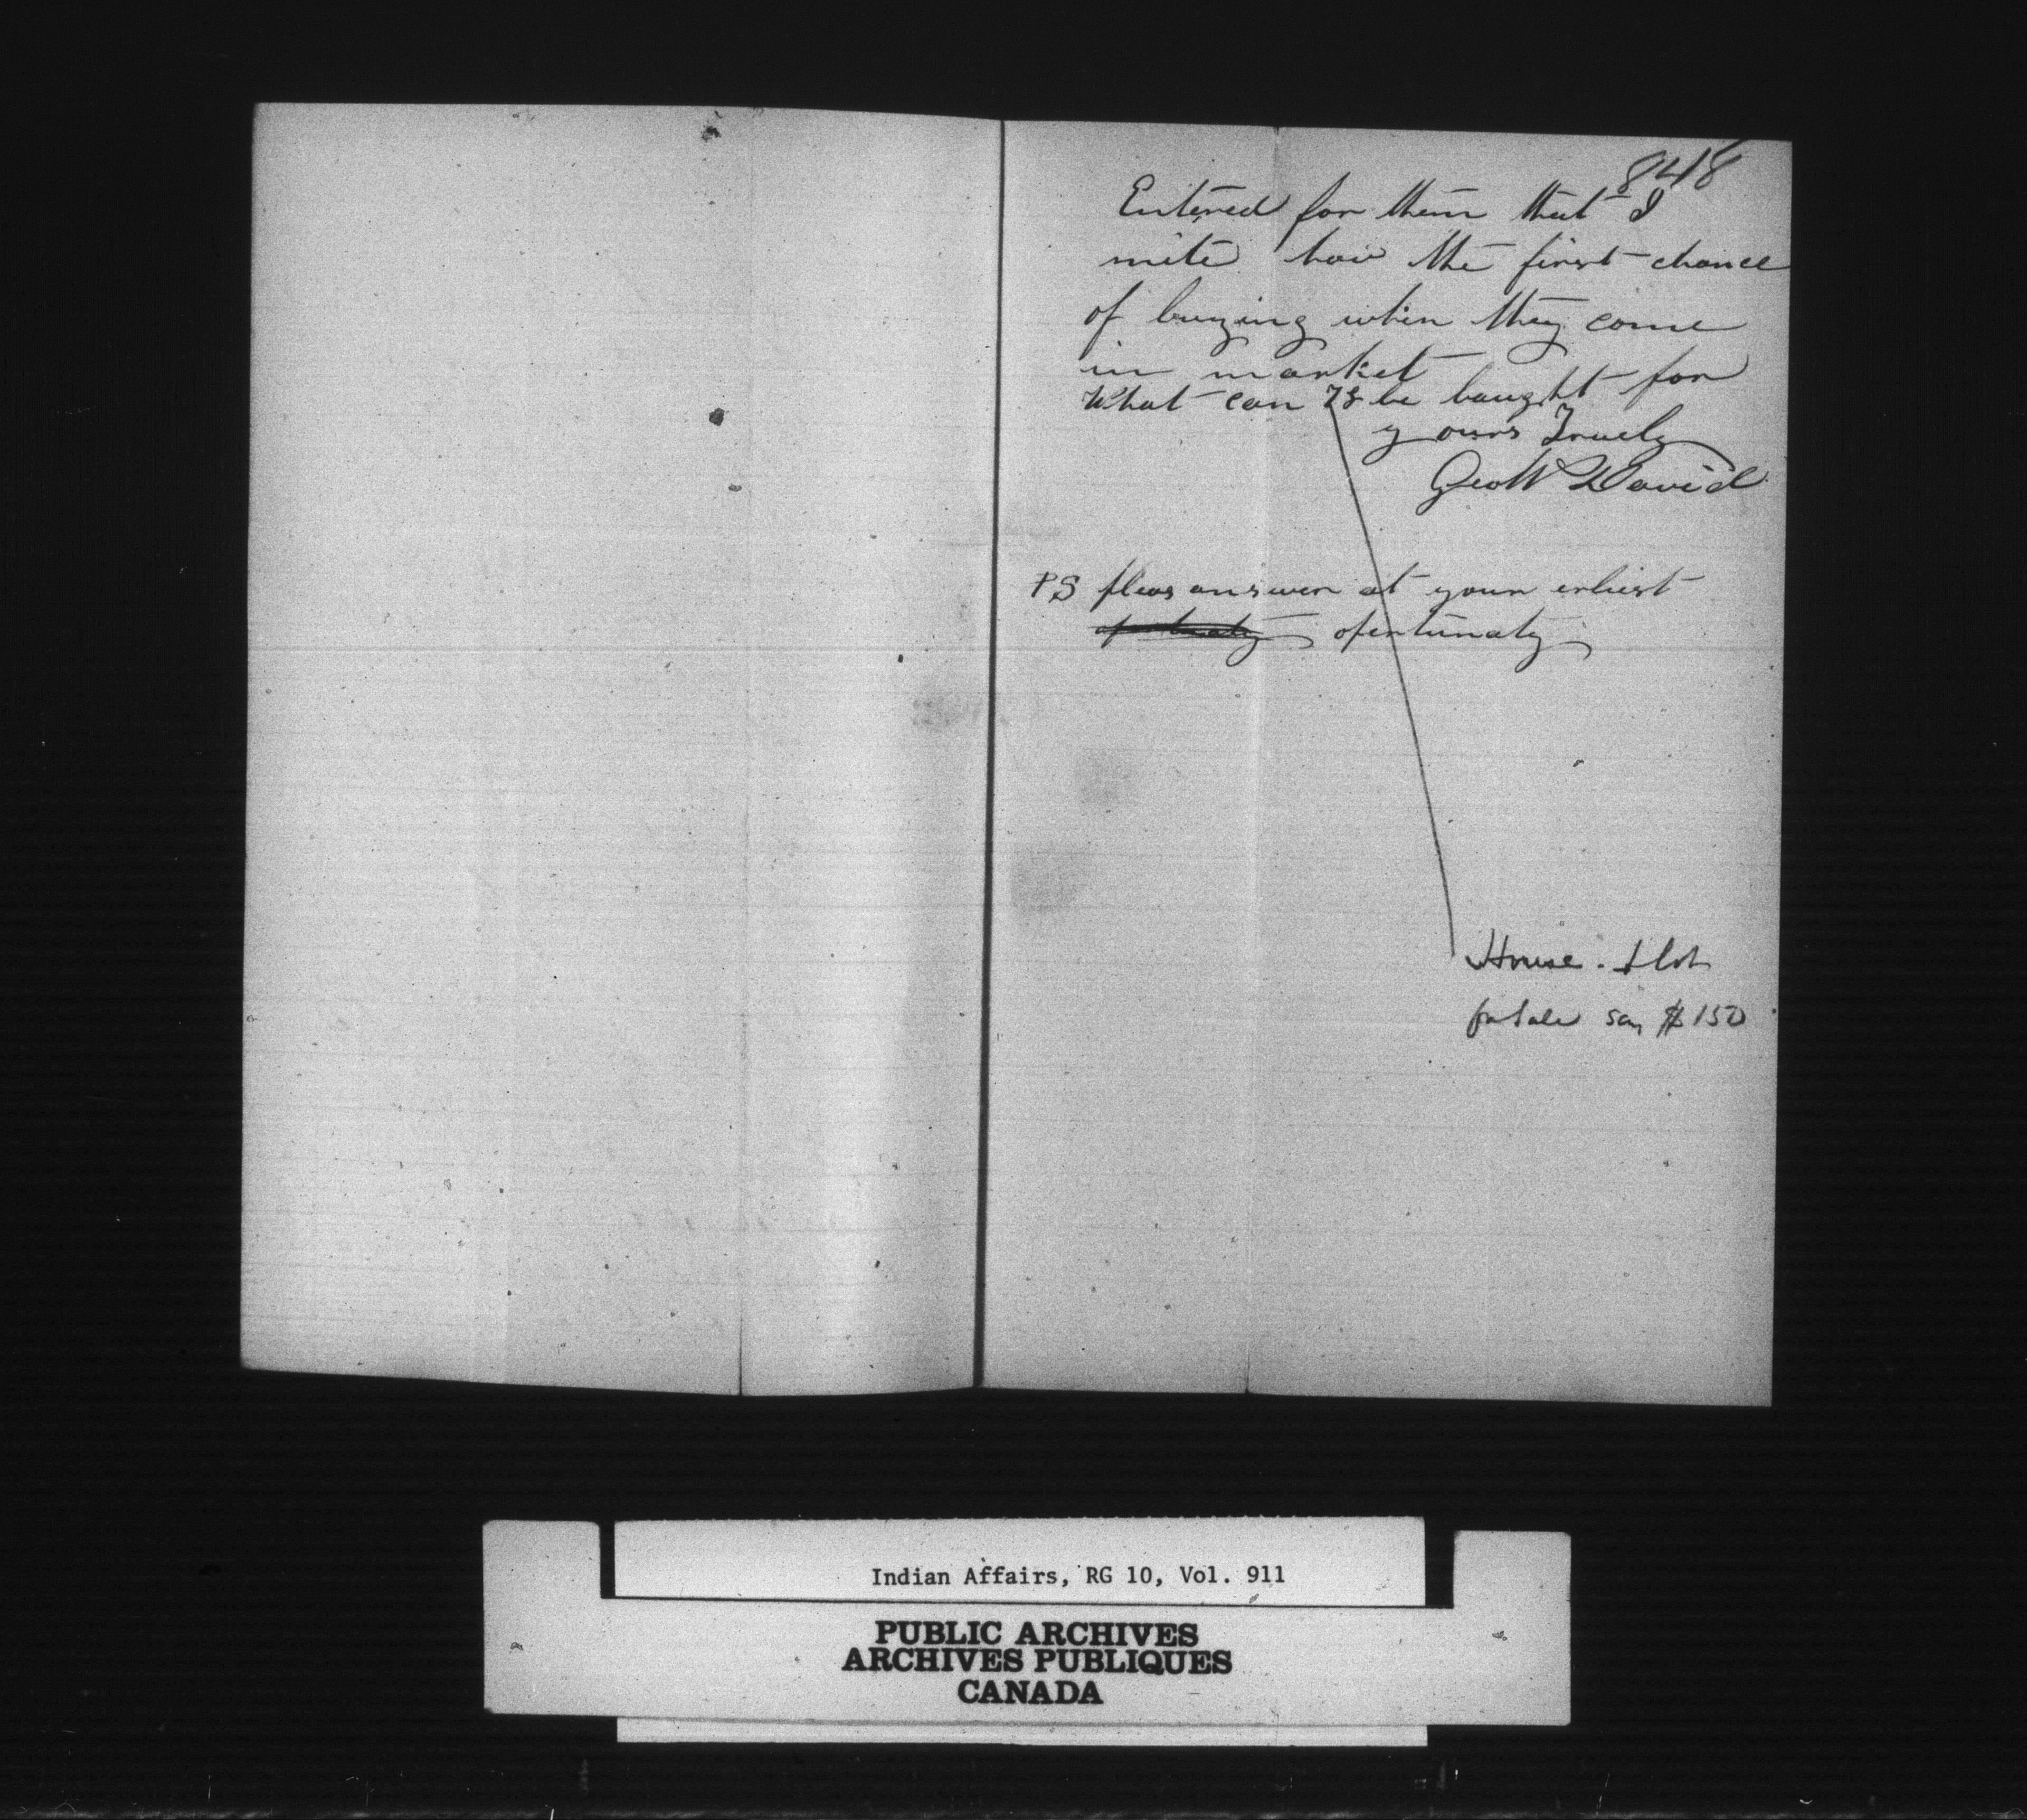 848
Entered for them that I
mite hav the first chance
of buying when they come
in market
What can 78 be baught for
yours Truely
Geo W David
PS pleas answer at your erliest
opertunaty
House & lot
for sale say $150
Indian Affairs, RG 10, Vol. 911
PUBLIC ARCHIVES
ARCHIVES PUBLIQUES
CANADA